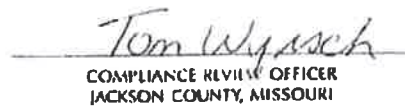 Tom Wyrsch
COMPLIANCE REVIEW OFFICER
JACKSON COUNTY, MISSOURI